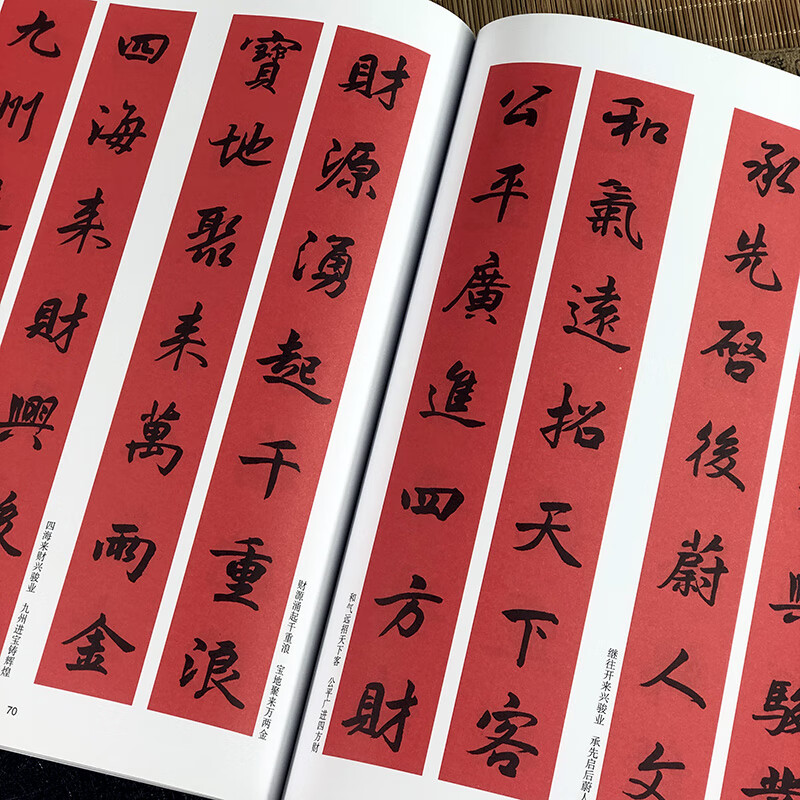 財源湧起千重浪
寶地聚来萬兩金
四海来財興
九州
财源涌起千重浪 宝地聚来万两金
四海来财兴骏业 九州进宝铸辉煌
70
興駿業
承先啓後蔚人文
和氣遠招天下客
公平廣進四方財
继往开来兴骏业 承先启后蔚人
和气远招天下客 公平广进四方财